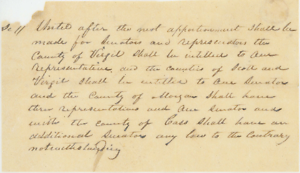 Until after the next apportionment shall be
made for Senators and representatives the
County of Virgil shall be entitled to one
Representative and the counties of Scott and
Virgil shall be entitled to one Senator
and the County of Morgan shall have
three representatives and one Senator and
with the county of Cass shall have an
additional Senator any law to the contrary
notwithstanding